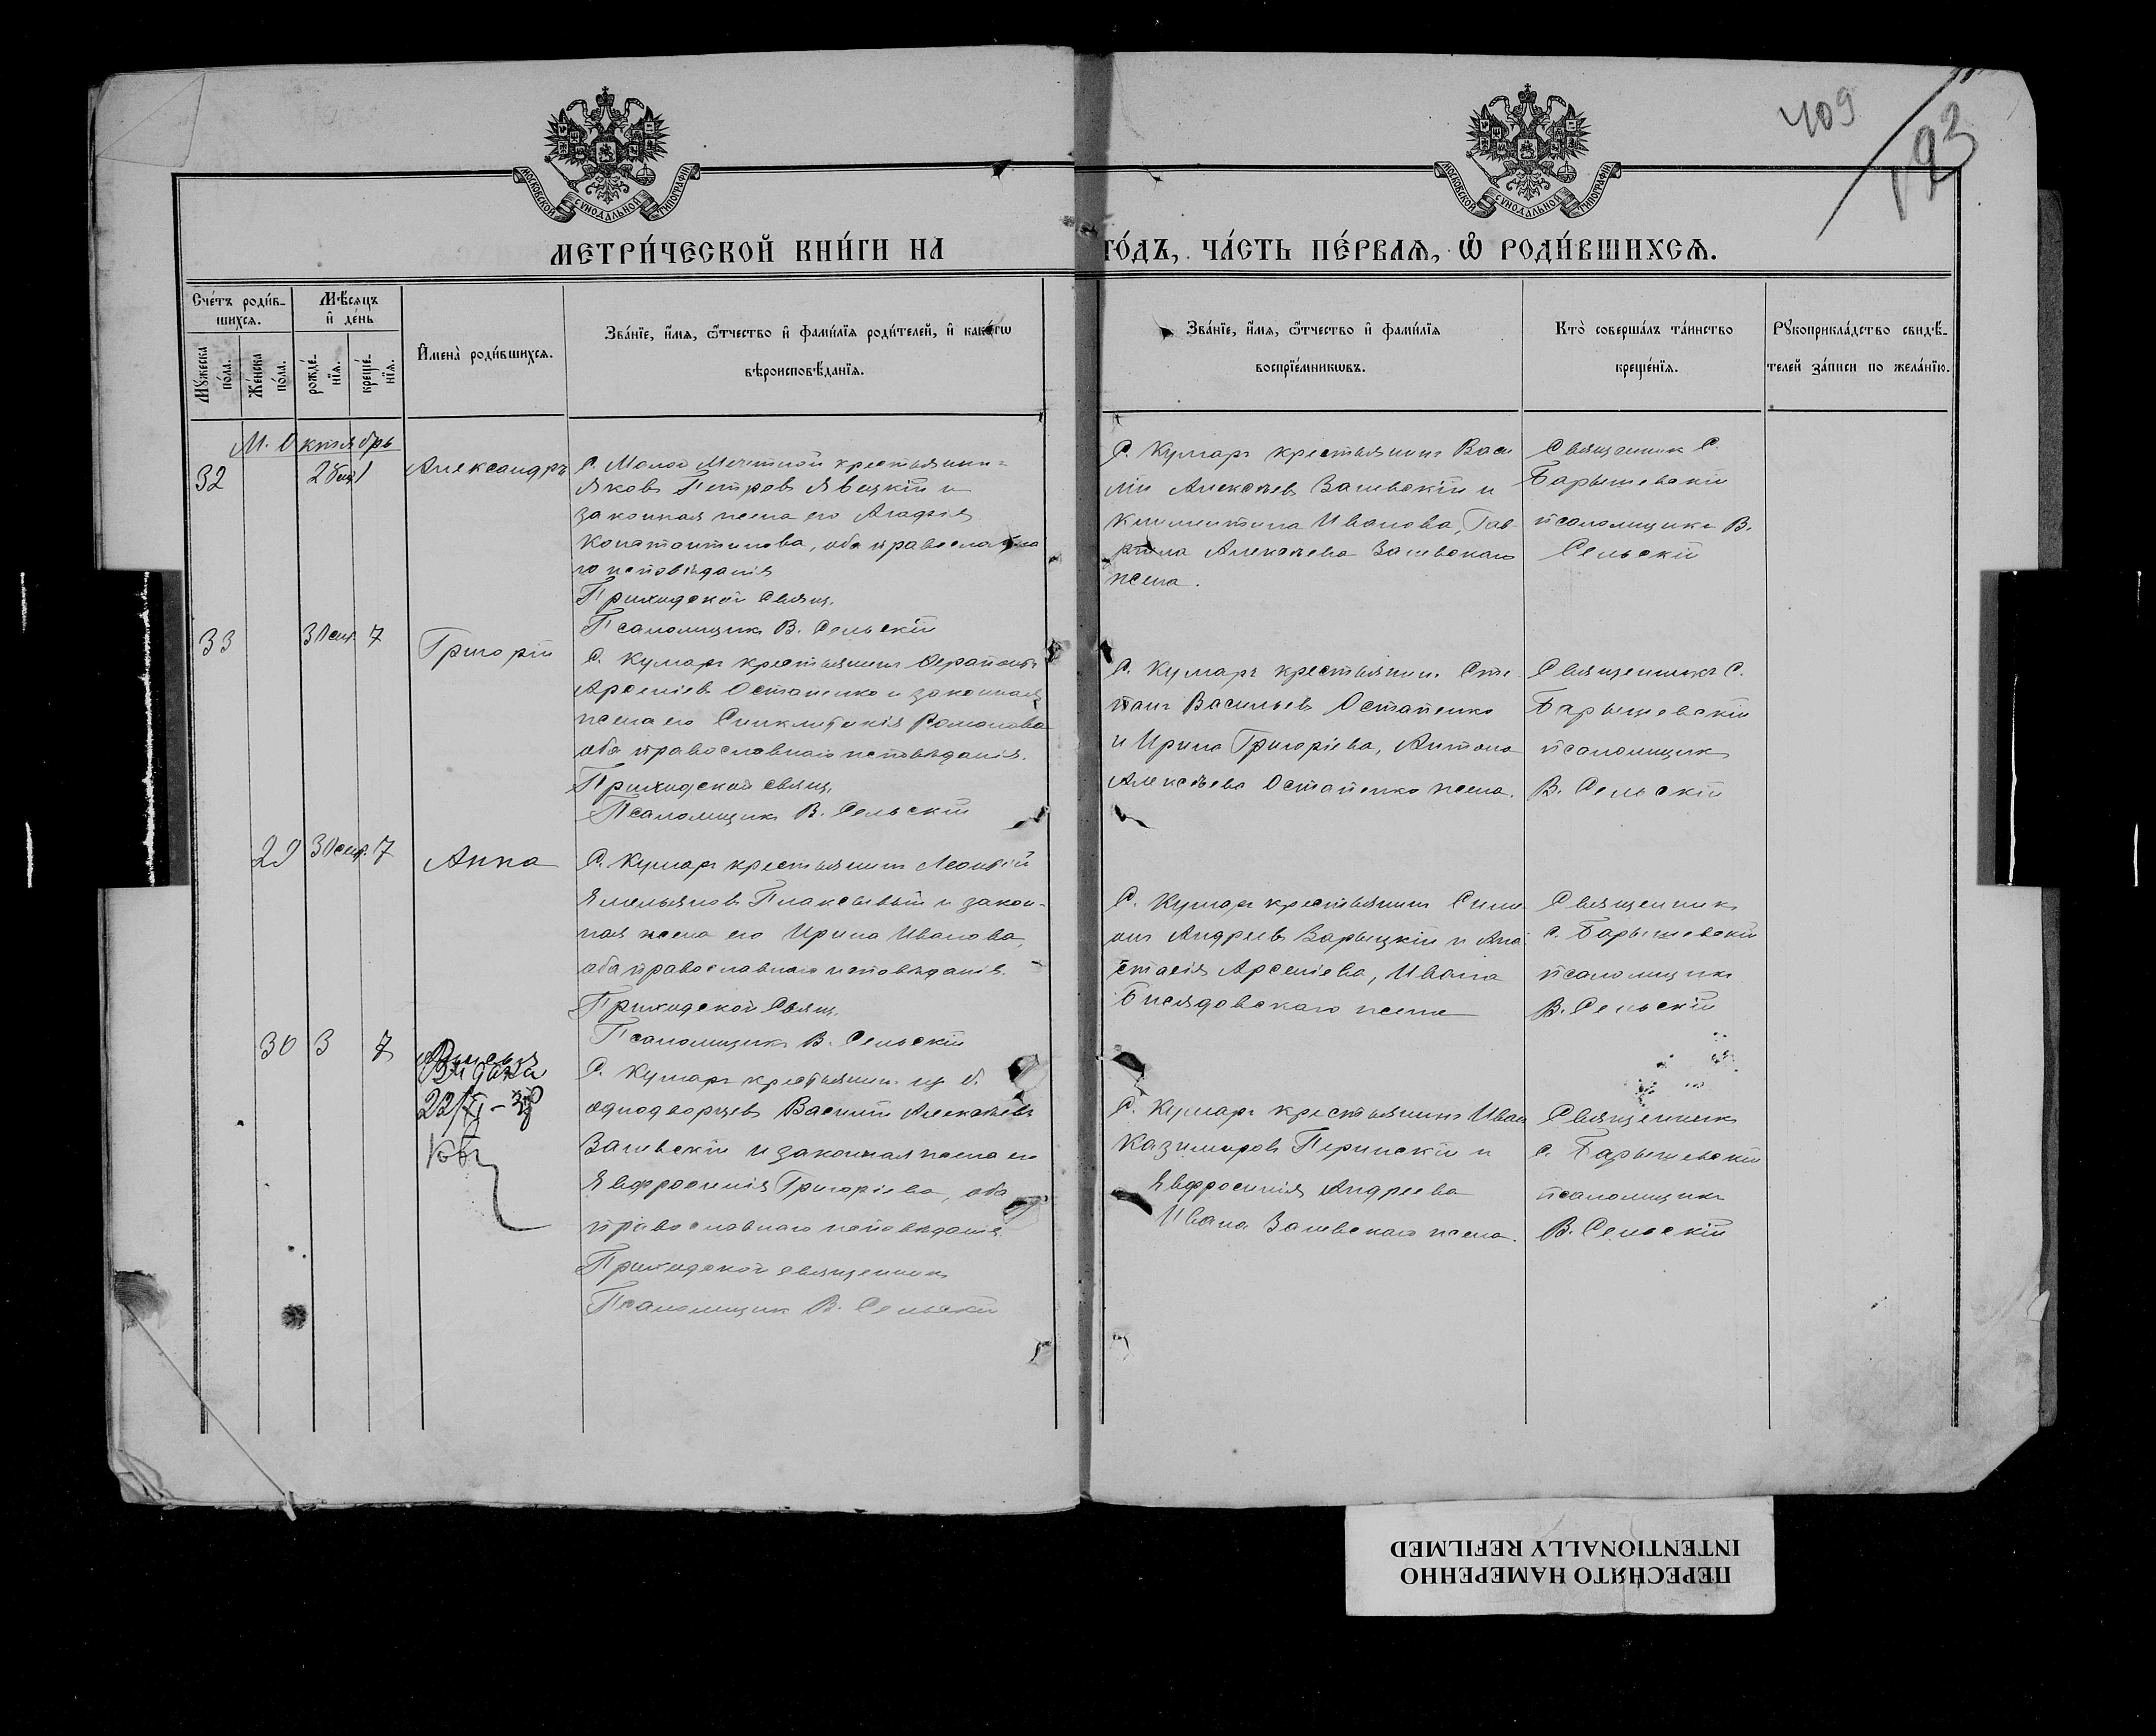 409
193
МОСКОВСКОЙ СѴНОДАЛЬНОЙ ТИПОГРАФІИ
МОСКОВСКОЙ СѴНОДАЛЬНОЙ ТИПОГРАФІИ
МЕТРИ́ЧЕСКОЙ КНИ́ГИ НА ГО́ДЪ, ЧА́СТЬ ПЕ́РВАѦ, Ѽ РОДИ́ВШИХСѦ.
Сче́тъ роди́в-
шихсѧ.
Мꙋжеска
по́ла.
Же́нска
по́ла.
Мѣ́сяцъ
и҆ де́нь
рожде́-
нїѧ.
креще́-
нїѧ.
И҆мена̀ роди́вшихсѧ.
Зва́нїе, и҆́мѧ, ѻ҆́тчество и҆ фами́лїѧ роди́телей, и҆ како́гѡ
вѣроисповѣ́данїѧ.
Зва́нїе, и҆́мѧ, ѻ҆́тчество и҆ фами́лїѧ
воспрїе́мникѡвъ.
Кто̀ соверша́лъ та́инство
креще́нїѧ.
Рꙋкоприкла́дство свидѣ́-
телей за́писи по жела́нїю.
М. Октябрь
32
1
Александръ
С. Малой Мечетной крестьянинъ
Яковъ Петровъ Явицкій и
законная жена его Агафія
Константинова, оба православна
го исповѣданія
Приходской Свящ.
Псаломщикъ В. Сельскій
С. Кумаръ крестьянинъ Васи
лій Алексѣевъ Залевскій и
Климентина Иванова, Гав
ріила Алексѣева Залевскаго
жена.
Священник С.
Барышевскій
псаломщикъ В.
Сельскій
33
30 сент. 7
Григорій
С. Кумаръ крестьянинъ Ферапонтъ
Арсеніевъ Остапенко и законная
жена его Синклитикія Романова
оба православнаго исповѣданія.
Приходской свящ.
Псаломщикъ В. Сельскій
С. Кумаръ крестьянинъ Сте
панъ Васильевъ Остапенко
и Ирина Григоріева, Антона
Алексѣева Остапенко жена.
Священникъ С.
Барышевскій
псаломщикъ
В. Сельскій
29
30 сент. 7
Анна
С. Кумаръ крестьянинъ Леонтій
Ямельяновъ Плаксывый и закон-
ная жена его Ирина Иванова,
оба православнаго исповѣданія.
Приходской Свящ.
Псаломщикъ В. Сельскій
С. Кумаръ крестьянинъ Симе
онъ Андреевъ Зарыцкій и Ана
стасія Арсеніева, Ивана
жена
Священникъ
С. Барышевскій
псаломщикъ
В. Сельскій
30
3
7
Видана
С. Кумаръ крестьянинъ из б.
однодворцевъ Василій Алексѣевъ
Залевскій и законная жена его
Явфросинія Григоріева, оба
православнаго исповѣданія
Приходской священникъ
Псаломщикъ В. Сельскій
С. Кумаръ крестьянинъ Иванъ
Казимировъ Перинскій и
Явфросинія Андреева
Ивана Залевскаго жена.
Священникъ
С. Барышевскій
псаломщикъ
В. Сельскій
ПЕРЕСНЯТО НАМЕРЕННО
INTENTIONALLY REFILMED